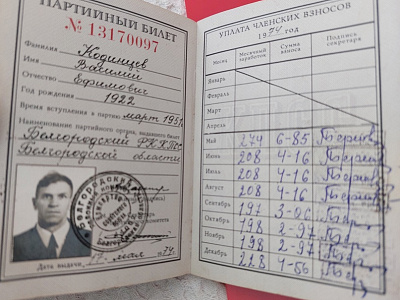 ПАРТИЙНЫЙ БИЛЕТ
№ 13170097
Фамилия Кодинцев
Имя Василий
Отчество Ефимович
Год рождения 1922
Время вступления в партию март 195
Наименование партийного органа, выдавшего билет
Белгородский РК КПСС
Белгородской области
Дата выдачи 17 мая 74
УПЛАТА ЧЛЕНСКИХ ВЗНОСОВ
1974 год
Месяц Месячный заработок Сумма взноса Подпись секретаря
Январь
Февраль
Март
Апрель
Май 274 6-85
Июнь 208 4-16
Июль 208 4-16
Август 208 4-16
Сентябрь 197
Октябрь 198 2-97
Ноябрь 198 2-97
Декабрь 228 4-56